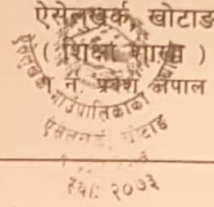 ऐसेलुखर्क, खोटाङ
( शिक्षा शाखा )
१ नं. प्रदेश नेपाल
गाउँपालिकाको
ऐसेलुखर्क, खोटाङ
स्था: २०७३